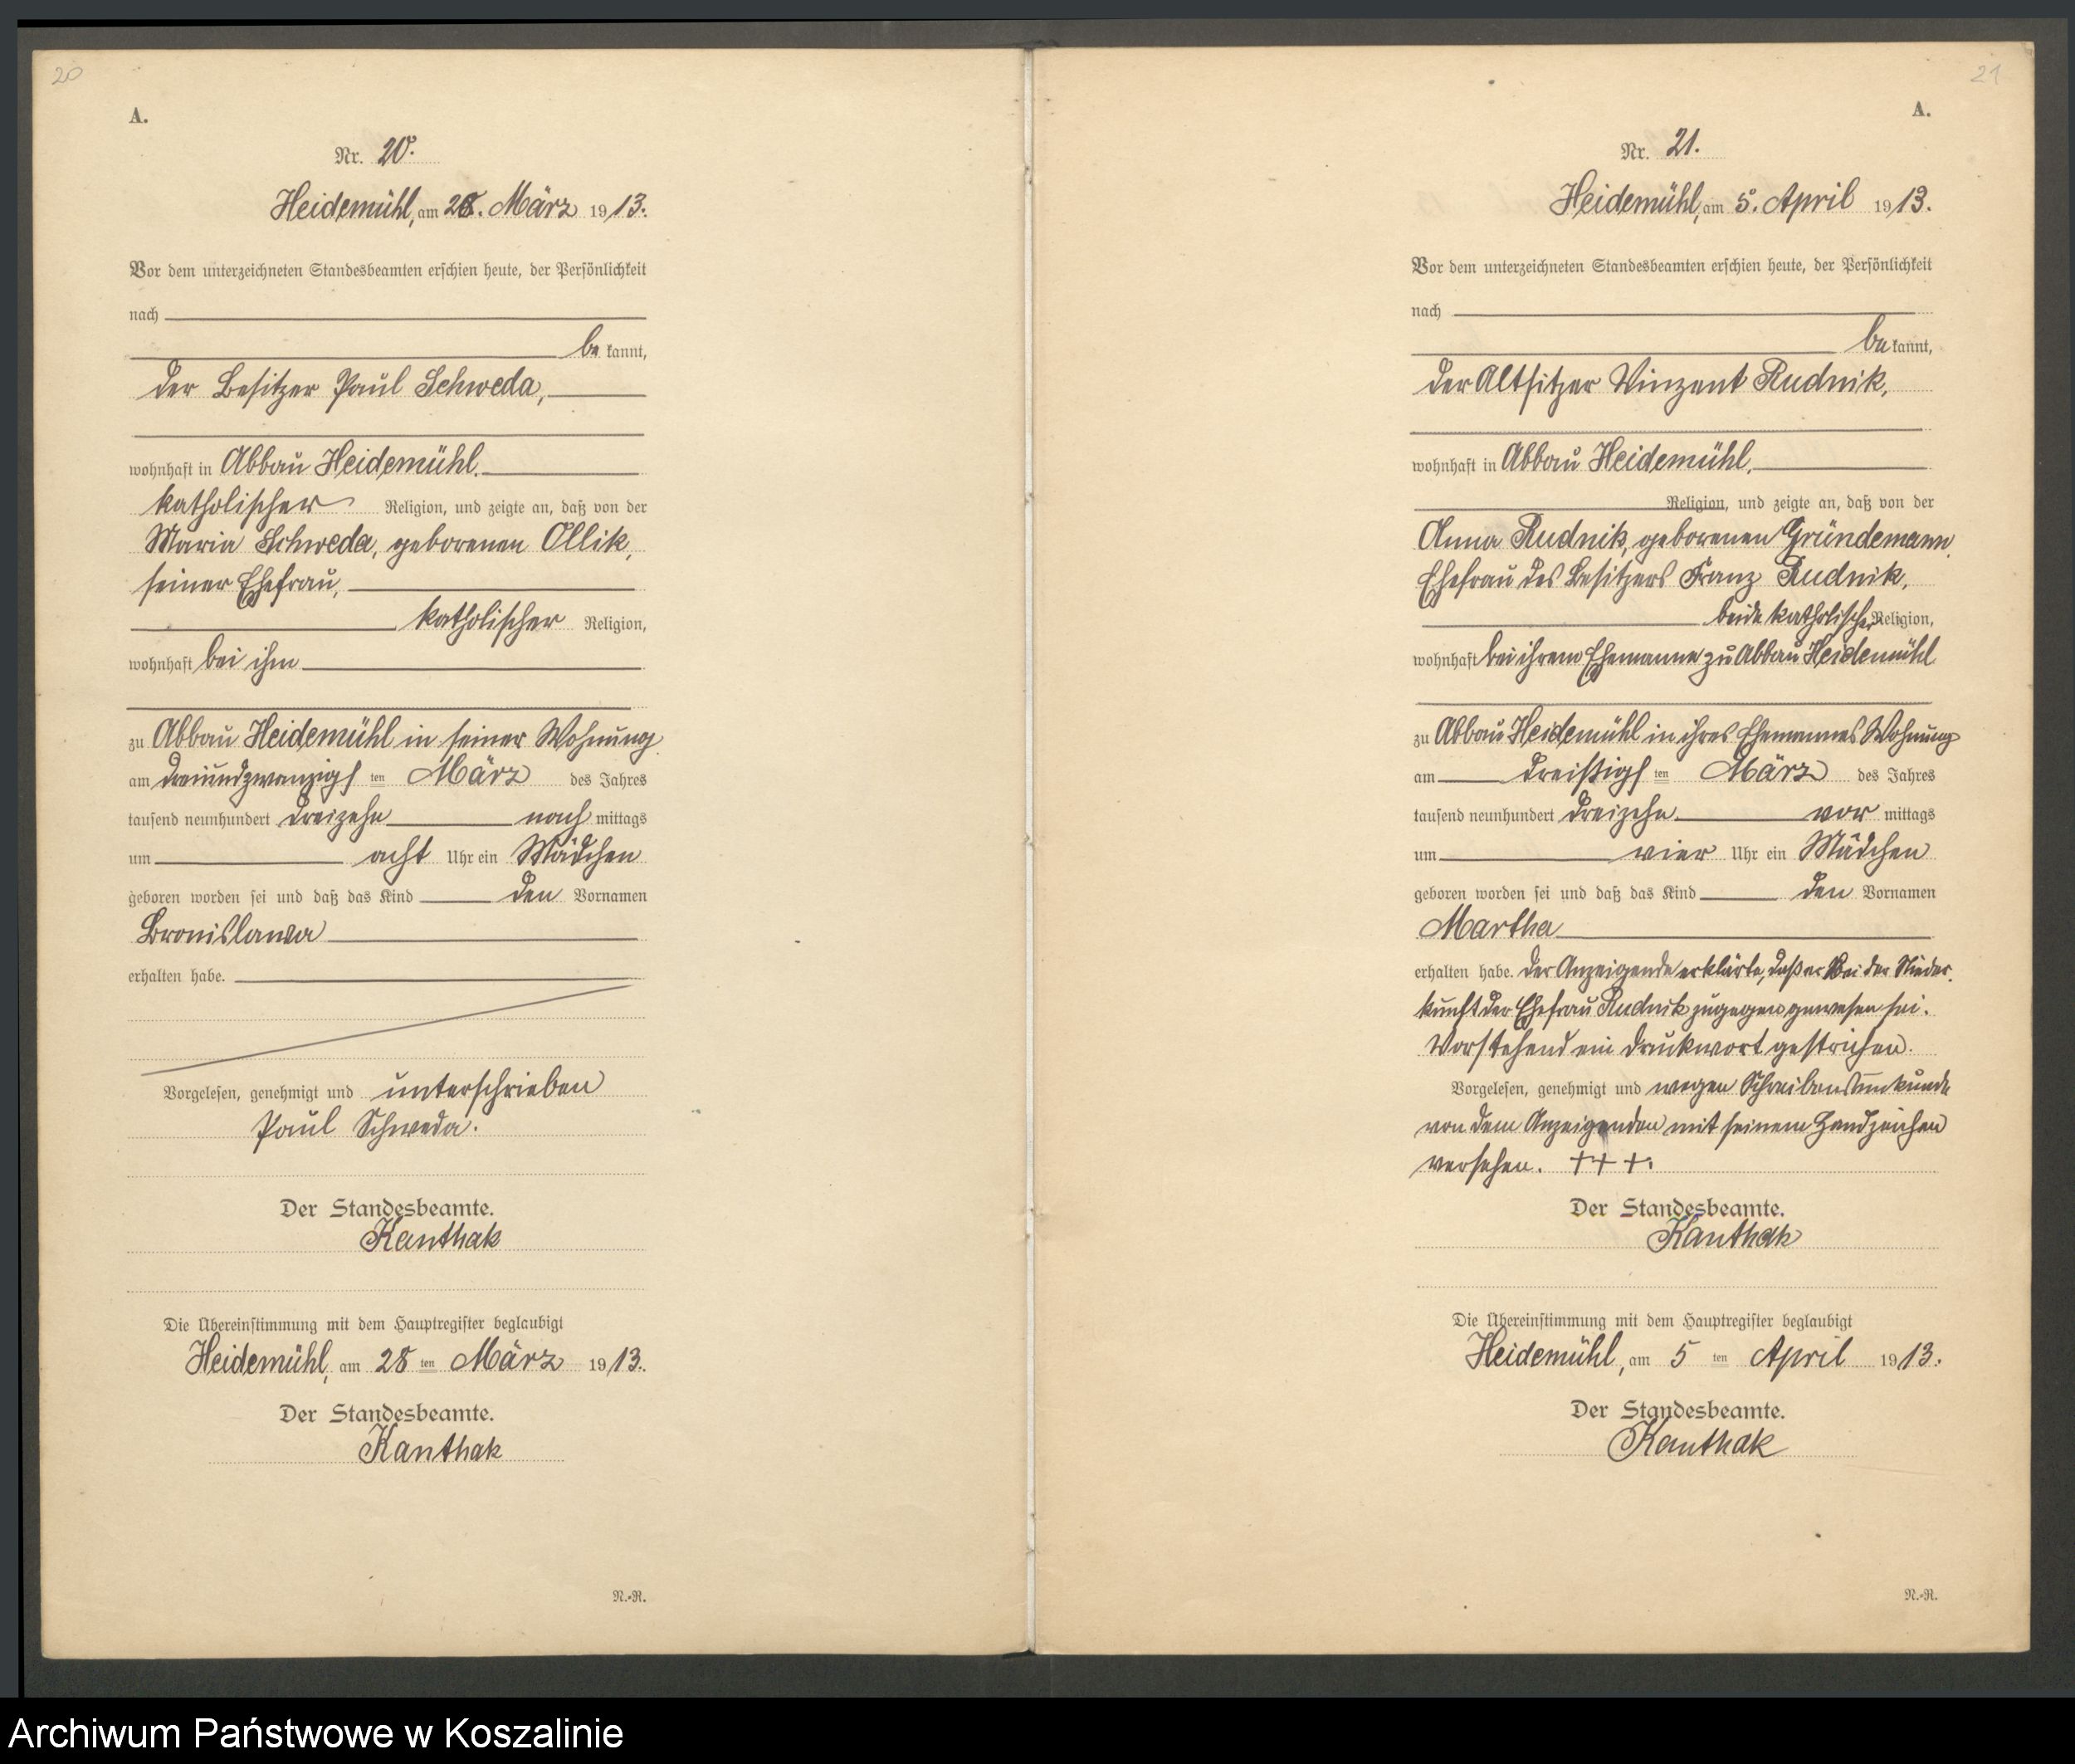 20
A.
Nr. 20.
Heidemühl, am 28. März 1913.
Vor dem unterzeichneten Standesbeamten erschien heute, der Persönlichkeit
nach
be kannt,
der Besitzer Paul Schweda,
wohnhaft in Abbau Heidemühl.
katholischer Religion, und zeigte an, daß von der
Maria Schweda, geborenen Ollik,
seiner Ehefrau,
katholischer Religion,
wohnhaft bei ihm
zu Abbau Heidemühl in seiner Wohnung
am dreiundzwanzigsten März des Jahres
tausend neunhundert dreizehn nach mittags
um acht Uhr ein Mädchen
geboren worden sei und daß das Kind den Vornamen
Bronislawa
erhalten habe.
Vorgelesen, genehmigt und unterschrieben
Paul Schweda.
Der Standesbeamte.
Kanthak
Die Übereinstimmung mit dem Hauptregister beglaubigt
Heidemühl, am 28 ten März 1913.
Der Standesbeamte.
Kanthak
N.-R.
21
A.
Nr. 21.
Heidemühl, am 5. April 1913.
Vor dem unterzeichneten Standesbeamten erschien heute, der Persönlichkeit
nach
be kannt,
der Altsitzer Vinzent Rudnik,
wohnhaft in Abbau Heidemühl,
Religion, und zeigte an, daß von der
Anna Rudnik, geborenen Gründemann,
Ehefrau des Besitzers Franz Rudnik,
beide katholischer Religion,
wohnhaft bei ihrem Ehemanne zu Abbau Heidemühl
zu Abbau Heidemühl in ihres Ehemannes Wohnung
am dreißigsten März des Jahres
tausend neunhundert dreizehn vor mittags
um vier Uhr ein Mädchen
geboren worden sei und daß das Kind den Vornamen
Martha
erhalten habe. Der Anzeigende erklärte, daß er bei der Nieder-
kunft der Ehefrau Rudnik zugegen gewesen sei.
Vorstehend ein Druckwort gestrichen.
Vorgelesen, genehmigt und wegen Schreibensunkunde
von dem Anzeigenden mit seinem Handzeichen
versehen. +++.
Der Standesbeamte.
Kanthak
Die Übereinstimmung mit dem Hauptregister beglaubigt
Heidemühl, am 5 ten April 1913.
Der Standesbeamte.
Kanthak
N.-R.
Archiwum Państwowe w Koszalinie